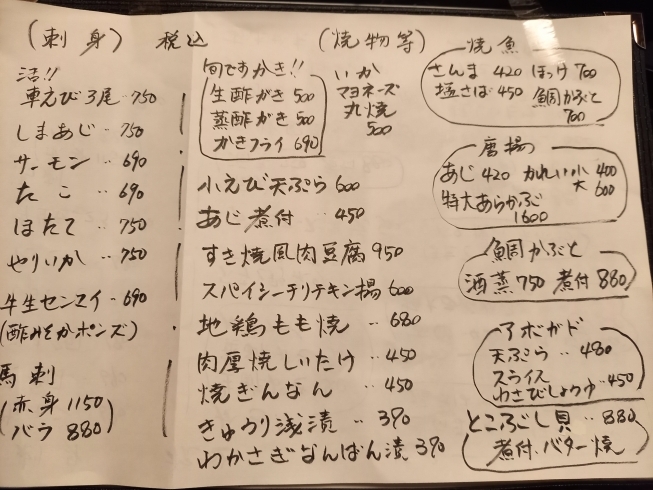 (刺身) 税込
活!!
車えび3尾 750
しまあじ ‥ 750
サーモン ‥ 690
たこ ‥ 690
ほたて ‥ 750
やりいか ‥ 750
牛生センマイ ‥ 690
(酢みそかポンズ)
馬刺
(赤身 1150
バラ 880)
(焼物等)
旬ですかき!!
生酢がき 500
蒸酢がき 500
かきフライ 690
いか
マヨネーズ
丸焼
500
小えび天ぷら 600
あじ煮付 ‥ 450
すき焼風肉豆腐 950
スパイシーチリチキン揚 600
地鶏もも焼 ‥ 680
肉厚焼しいたけ ‥ 450
焼ぎんなん ‥ 450
きゅうり浅漬 ‥ 390
わかさぎなんばん漬 390
焼魚
さんま 420 ほっけ 700
塩さば 450 鯛かぶと
700
唐揚
あじ 420 かれい小 400
大 600
特大あらかぶ
1600
鯛かぶと
酒蒸 750 煮付 880
アボガド
天ぷら ‥ 480
スライス
わさびしょうゆ 450
とこぶし貝 ‥ 880
煮付、バター焼